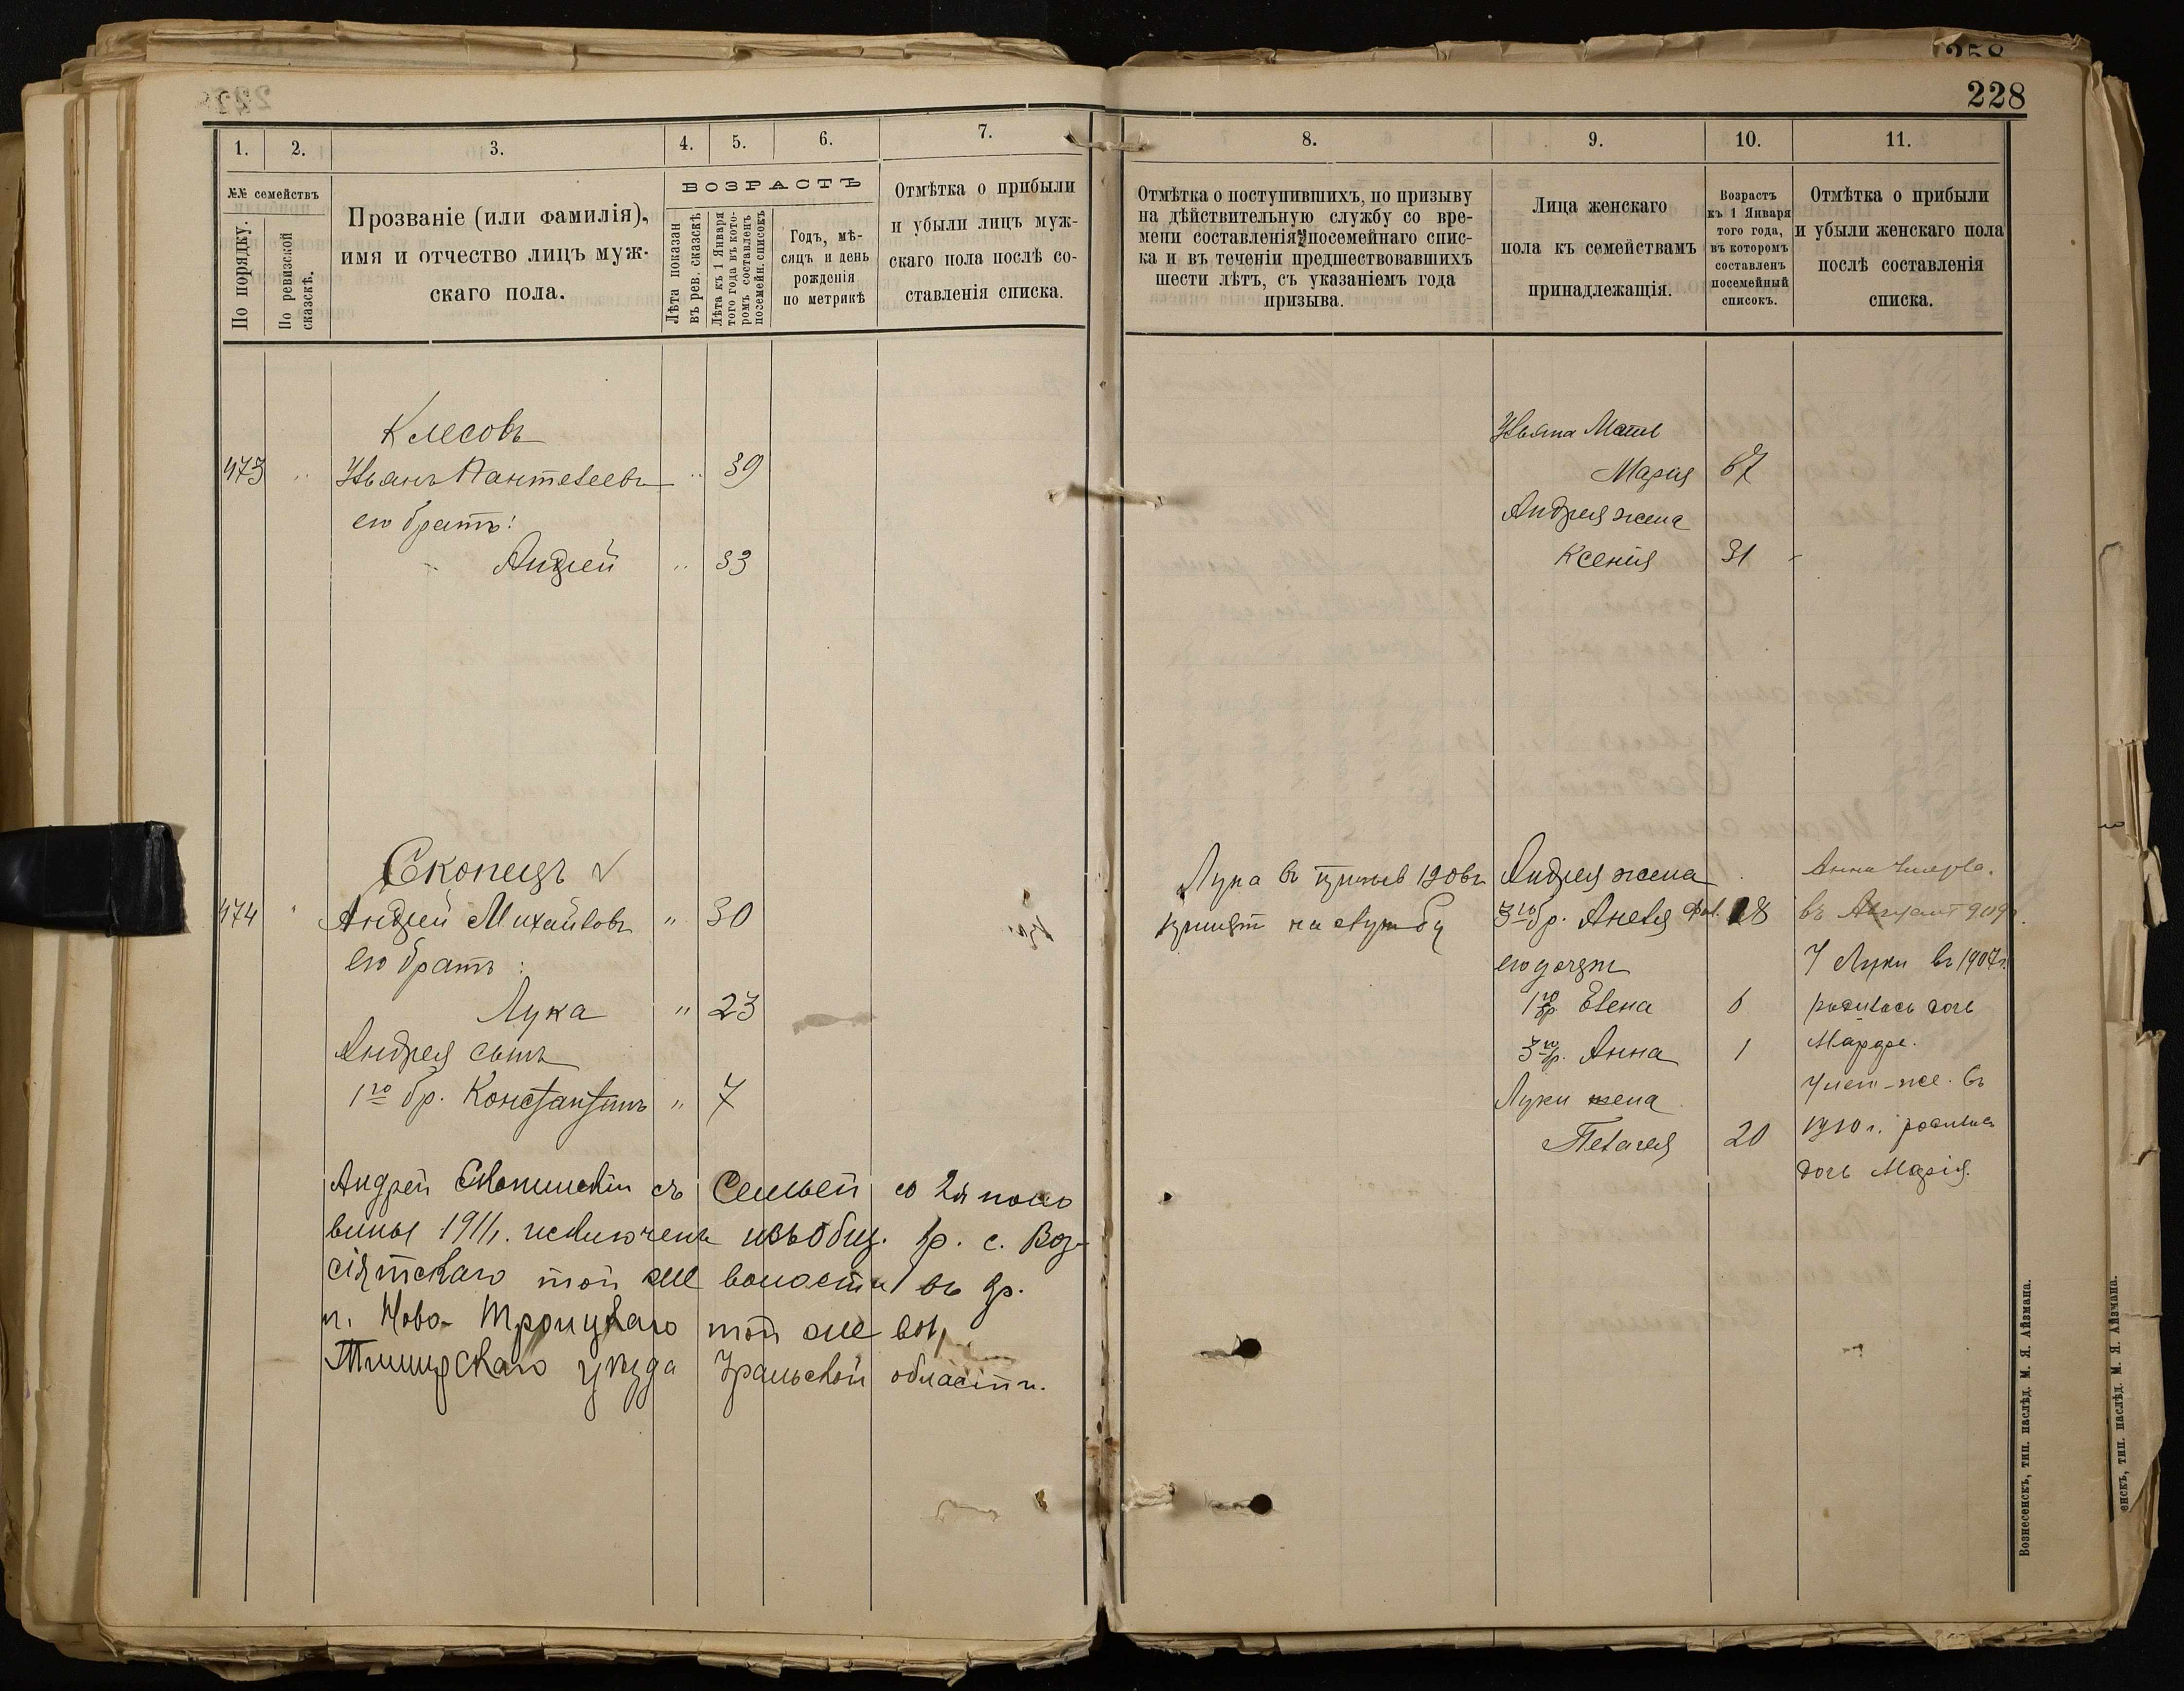 228
1.
2.
3.
4.
5.
6.
7.
№№ семействъ
По порядку.
По ревизской сказскѣ.
Прозваніе (или фамилія),
имя и отчество лицъ муж-
скаго пола.
ВОЗРАСТЪ
Лѣта показан
въ рев. сказскѣ
Лѣта къ 1 Января
того года въ кото-
ромъ составленъ
посемейн. списокъ
Годъ, мѣ-
сяцъ и день
рожденія
по метрикѣ
Отмѣтка о прибыли
и убыли лицъ муж-
скаго пола послѣ со-
ставленія списка.
Клесовъ
473
Иванъ Пантелеевъ
39
его братъ:
Андрей
33
Скопецъ
474
Андрей Михайловъ
"
30
его братъ:
Лука
"
23
Андрея сынъ
1го бр. Константинъ
"
7
Андрей съ Семьей со 2й поло
вины 1911г. исключенъ изъ Общ. кр. с. Воз-
сіятскаго той же волости въ кр.
п. Ново-Троицкаго той же вол,
уѣзда Уральской области.
8.
9.
10.
11.
Отмѣтка о поступившихъ, по призыву
на дѣйствительную службу со вре-
мени составленія посемейнаго спис-
ка и въ теченіи предшествовавшихъ
шести лѣтъ, съ указаніемъ года
призыва.
Лица женскаго
пола къ семействамъ
принадлежащія.
Возрастъ
къ 1 Января
того года,
въ которомъ
составленъ
посемейный
списокъ.
Отмѣтка о прибыли
и убыли женскаго пола
послѣ составленія
списка.
Ивана Мать
Марія
67
Андрея жена
Ксенія
31
Лука въ призыв 1906г
принят на службу
Андрея жена
3го бр. 28
его дочери
1го бр. Елена
6
3го бр. Анна
1
Луки жена
Пелагея
20
Анна умерла.
въ Август 909г.
У Луки въ 1907г.
родилась дочь
Марфа.
У него-же въ
1910 г. родилась
дочь Марія.
Вознесенскъ, тип. наслѣд. М. Я. Айзмана.
енскъ, тип. наслѣд. М. Я. Айзмана.